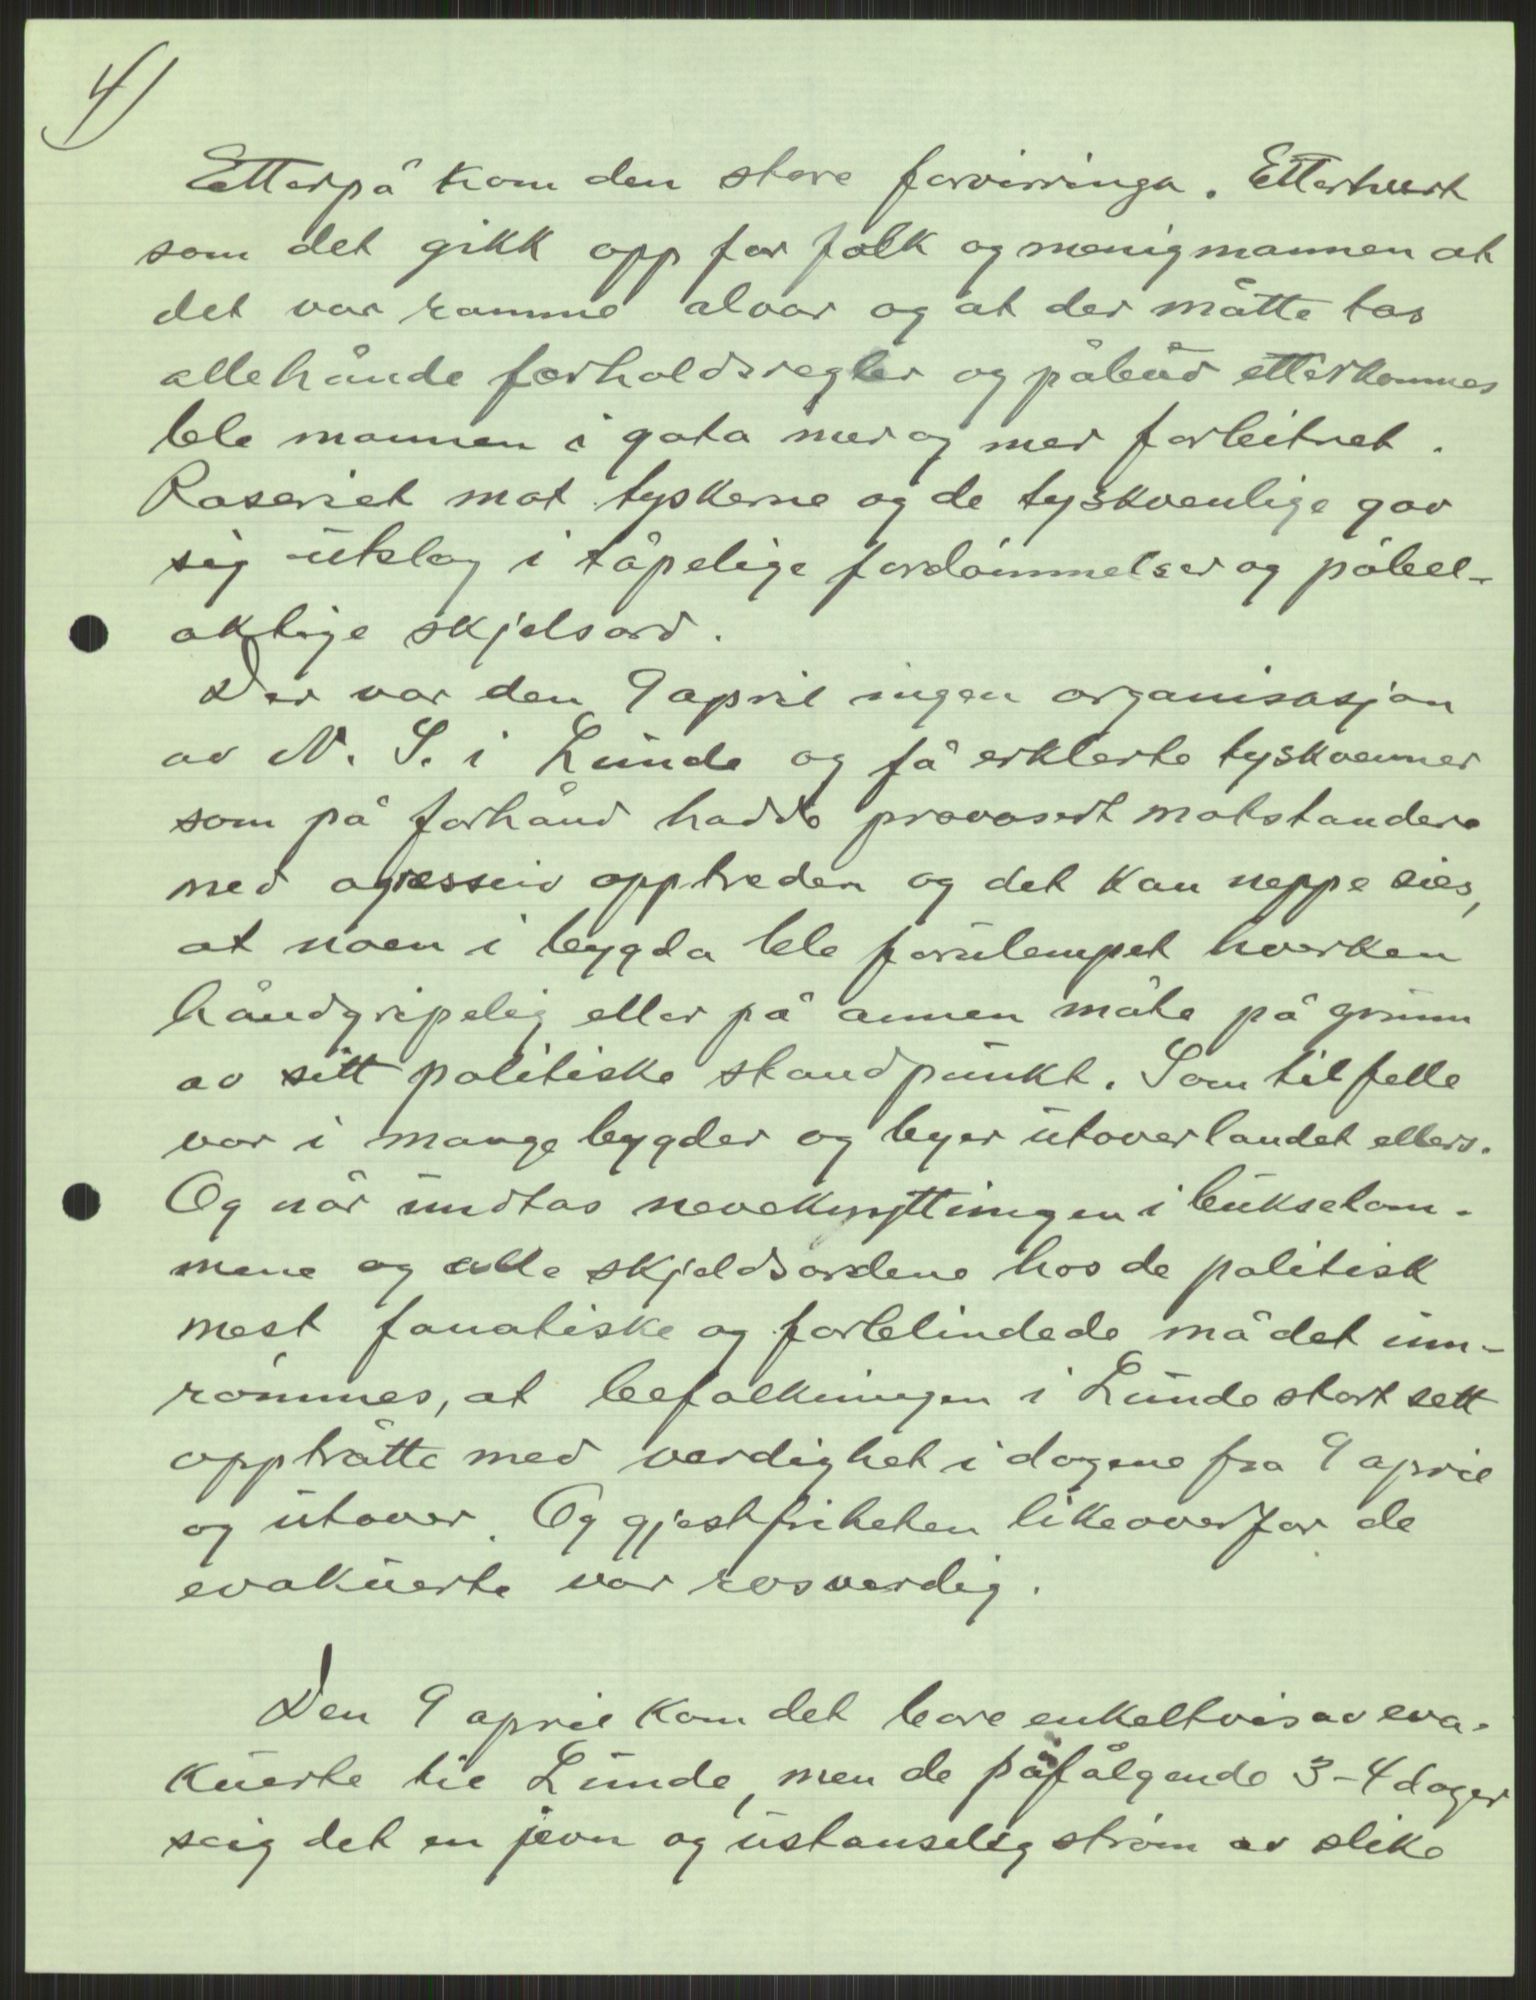 4)
Etterpå kom den store forvirringa. Etterhvert
som det gikk opp for folk og menigmannen at
det var ramme alvor og at der måtte tas
allehånde forholdsregler og påbud etterkommes
ble mannen i gata mer og mer forbitret.
Raseriet mot tyskerne og de tyskvenlige gav
sig utslag i tåpelige fordømmelser og pøbel-
aktige skjelsord.
Der var den 9 april ingen organisasjon
av N. S. i Lunde og få erklerte tyskvenner
som på forhånd hadde provosert motstandere
med agressiv opptreden og det kan neppe sies,
at noen i bygda ble forulempet hverken
håndgripelig eller på annen måte på grunn
av sitt politiske standpunkt. Som tilfelle
var i mange bygder og byer utover landet ellers.
Og når undtas neveknyttingen i bukselom-
mene og alle skjeldsordene hos de politisk
mest fanatiske og forblindede må det inn-
rømmes, at befolkningen i Lunde stort sett
opptrådte med verdighet i dagene fra 9 april
og utover. Og gjestfriheten likeoverfor de
evakuerte var rosverdig.
Den 9 april kom det bare enkeltvis av eva-
kuerte til Lunde, men de påfølgende 3-4 dager
seig det en jevn og ustanselig strøm av slike